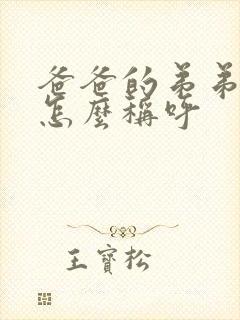 爸爸的弟弟
怎麼稱呼
王寶松